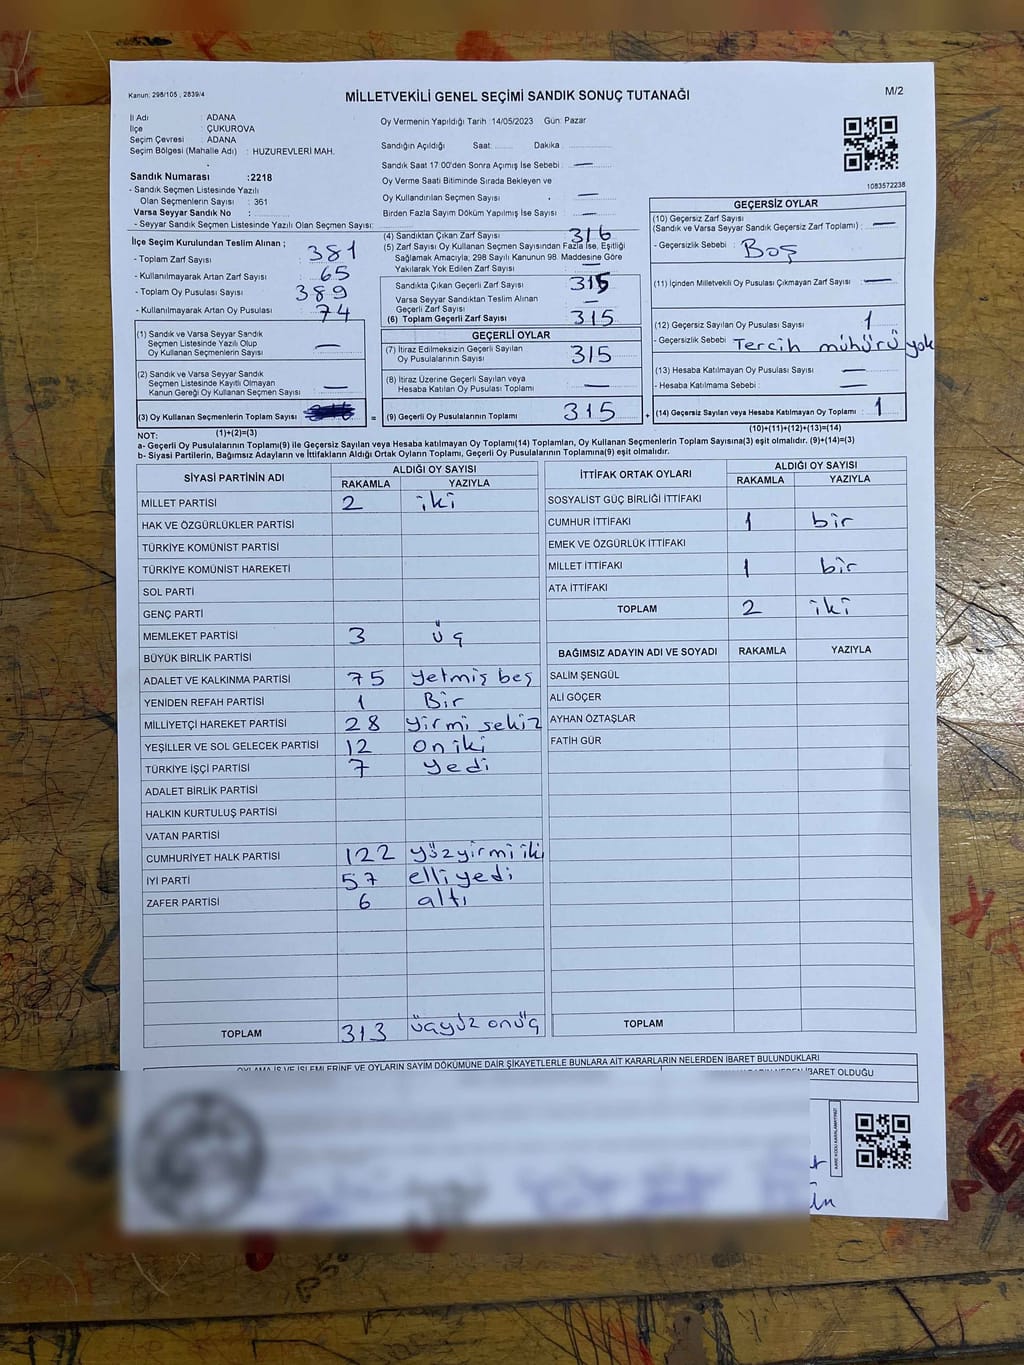 Kanun: 298/105 , 2839/4
MİLLETVEKİLİ GENEL SEÇİMİ SANDIK SONUÇ TUTANAĞI
M/2
İl Adı : ADANA
İlçe : ÇUKUROVA
Seçim Çevresi : ADANA
Seçim Bölgesi (Mahalle Adı) : HUZUREVLERİ MAH.
Sandık Numarası :2218
- Sandık Seçmen Listesinde Yazılı
Olan Seçmenlerin Sayısı : 361
Varsa Seyyar Sandık No :
- Seyyar Sandık Seçmen Listesinde Yazılı Olan Seçmen Sayısı:
İlçe Seçim Kurulundan Teslim Alınan ;
- Toplam Zarf Sayısı : 381
- Kullanılmayarak Artan Zarf Sayısı : 65
- Toplam Oy Pusulası Sayısı : 389
- Kullanılmayarak Artan Oy Pusulası : 74
(1) Sandık ve Varsa Seyyar Sandık
Seçmen Listesinde Yazılı Olup
Oy Kullanan Seçmenlerin Sayısı : —
(2) Sandık ve Varsa Seyyar Sandık
Seçmen Listesinde Kayıtlı Olmayan
Kanun Gereği Oy Kullanan Seçmen Sayısı : —
(3) Oy Kullanan Seçmenlerin Toplam Sayısı :
(1)+(2)=(3)
Oy Vermenin Yapıldığı Tarih 14/05/2023 Gün: Pazar
Sandığın Açıldığı Saat: Dakika :
Sandık Saat 17:00'den Sonra Açımış İse Sebebi : —
Oy Verme Saati Bitiminde Sırada Bekleyen ve
Oy Kullandırılan Seçmen Sayısı : —
Birden Fazla Sayım Döküm Yapılmış İse Sayısı : —
(4) Sandıktan Çıkan Zarf Sayısı : 316
(5) Zarf Sayısı Oy Kullanan Seçmen Sayısından Fazla İse, Eşitliği
Sağlamak Amacıyla, 298 Sayılı Kanunun 98. Maddesine Göre
Yakılarak Yok Edilen Zarf Sayısı : —
Sandıkta Çıkan Geçerli Zarf Sayısı : 315
Varsa Seyyar Sandıktan Teslim Alınan
Geçerli Zarf Sayısı : —
(6) Toplam Geçerli Zarf Sayısı : 315
GEÇERLİ OYLAR
(7) İtiraz Edilmeksizin Geçerli Sayılan
Oy Pusulalarının Sayısı : 315
(8) İtiraz Üzerine Geçerli Sayılan veya
Hesaba Katılan Oy Pusulası Toplamı : —
= (9) Geçerli Oy Pusulalarının Toplamı : 315 +
1083572238
GEÇERSİZ OYLAR
(10) Geçersiz Zarf Sayısı
(Sandık ve Varsa Seyyar Sandık Geçersiz Zarf Toplamı) : —
- Geçersizlik Sebebi : Boş
(11) İçinden Milletvekili Oy Pusulası Çıkmayan Zarf Sayısı : —
(12) Geçersiz Sayılan Oy Pusulası Sayısı : 1
- Geçersizlik Sebebi : Tercih mühürü yok
(13) Hesaba Katılmayan Oy Pusulası Sayısı : —
- Hesaba Katılmama Sebebi : —
(14) Geçersiz Sayılan veya Hesaba Katılmayan Oy Toplamı : 1
(10)+(11)+(12)+(13)=(14)
NOT:
a- Geçerli Oy Pusulalarının Toplamı(9) ile Geçersiz Sayılan veya Hesaba katılmayan Oy Toplamı(14) Toplamları, Oy Kullanan Seçmenlerin Toplam Sayısına(3) eşit olmalıdır. (9)+(14)=(3)
b- Siyasi Partilerin, Bağımsız Adayların ve İttifakların Aldığı Ortak Oyların Toplamı, Geçerli Oy Pusulalarının Toplamına(9) eşit olmalıdır.
SİYASİ PARTİNİN ADI
ALDIĞI OY SAYISI
RAKAMLA YAZIYLA
MİLLET PARTİSİ 2 iki
HAK VE ÖZGÜRLÜKLER PARTİSİ
TÜRKİYE KOMÜNİST PARTİSİ
TÜRKİYE KOMÜNİST HAREKETİ
SOL PARTİ
GENÇ PARTİ
MEMLEKET PARTİSİ 3 üç
BÜYÜK BİRLİK PARTİSİ
ADALET VE KALKINMA PARTİSİ 75 yetmiş beş
YENİDEN REFAH PARTİSİ 1 Bir
MİLLİYETÇİ HAREKET PARTİSİ 28 yirmi sekiz
YEŞİLLER VE SOL GELECEK PARTİSİ 12 on iki
TÜRKİYE İŞÇİ PARTİSİ 7 yedi
ADALET BİRLİK PARTİSİ
HALKIN KURTULUŞ PARTİSİ
VATAN PARTİSİ
CUMHURİYET HALK PARTİSİ 122 yüzyirmi iki
İYİ PARTİ 57 elli yedi
ZAFER PARTİSİ 6 altı
TOPLAM 313 üçyüz onüç
İTTİFAK ORTAK OYLARI
ALDIĞI OY SAYISI
RAKAMLA YAZIYLA
SOSYALİST GÜÇ BİRLİĞİ İTTİFAKI
CUMHUR İTTİFAKI 1 bir
EMEK VE ÖZGÜRLÜK İTTİFAKI
MİLLET İTTİFAKI 1 bir
ATA İTTİFAKI
TOPLAM 2 iki
BAĞIMSIZ ADAYIN ADI VE SOYADI RAKAMLA YAZIYLA
SALİM ŞENGÜL
ALİ GÖÇER
AYHAN ÖZTAŞLAR
FATİH GÜR
TOPLAM
OYLAMA İŞ VE İŞLEMLERİNE VE OYLARIN SAYIM DÖKÜMÜNE DAİR ŞİKAYETLERLE BUNLARA AİT KARARLARIN NELERDEN İBARET BULUNDUKLARI
İBARET OLDUĞU